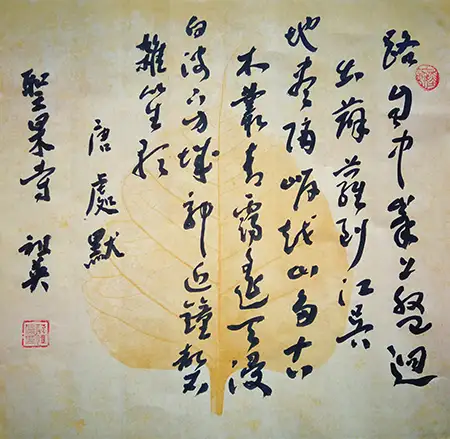 路自中峯上盤迴
出薜蘿到江吳
地盡隔岸越山多古
木叢青靄遙天浸
白波下方城郭近鐘磬
雜笙歌
唐處默
聖果寺